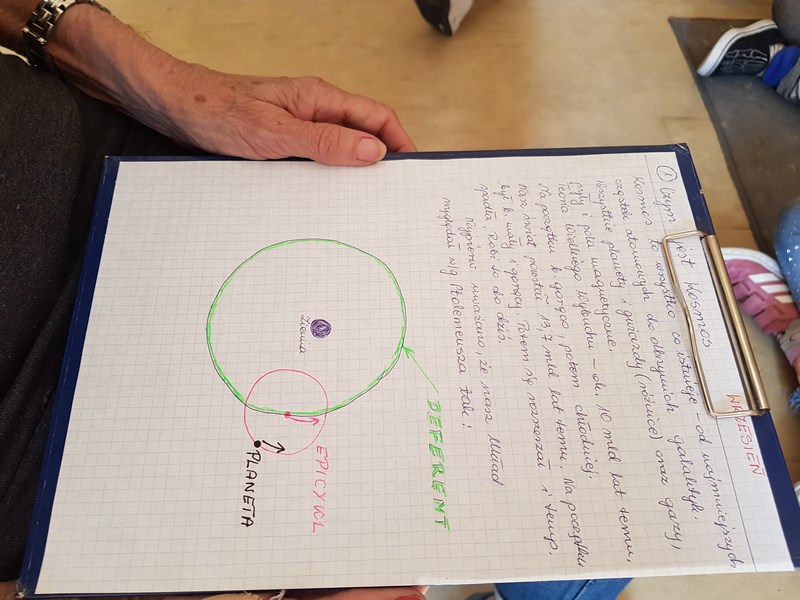 WRZESIEŃ
① Czym jest Kosmos
Kosmos to wszystko co istnieje – od najmniejszych
cząstek atomowych do olbrzymich galaktyk.
Wszystkie planety i gwiazdy (różnice) oraz gazy,
pyły i pola magnetyczne.
Teoria Wielkiego Wybuchu – ok. 10 mld lat temu,
Na początku b. gorąco, potem chłodniej.
Nasz świat powstał 13,7 mld lat temu. Na początku
był b. mały i gorący. Potem się rozszerzał i temp.
spadła. Robi so do dziś.
Najpierw uważano, że nasz układ
wyglądał wg Ptolemeusza tak:
DEFERENT
Ziemia
EPICYKL
PLANETA